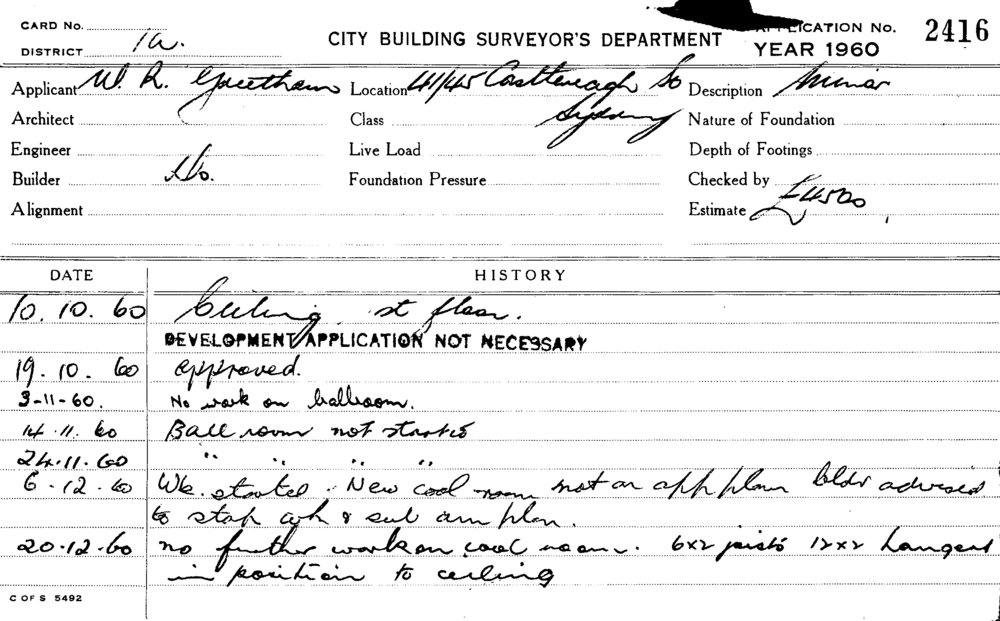 CARD No.
DISTRICT 1a.
CITY BUILDING SURVEYOR'S DEPARTMENT
LICATION No. 2416
YEAR 1960
Applicant W. R. Greetham Location 41/45 Castlereagh St Description Minor
Architect Class Sydney Nature of Foundation
Engineer Live Load Depth of Footings
Builder Do. Foundation Pressure Checked by
Alignment Estimate £4500
DATE HISTORY
10.10.60 Ceiling st floor.
DEVELOPMENT APPLICATION NOT NECESSARY
19.10.60 approved.
3-11-60. No work on ballroom.
14.11.60 Ball room not started
24.11.60 " " " "
6.12.60 Wk. started. New cool room not on app plan bldr advised
to stop wk & sub am plan.
20.12.60 no further work on cool room. 6x2 joists 12x2 hangers
in position to ceiling
C OF S 5492